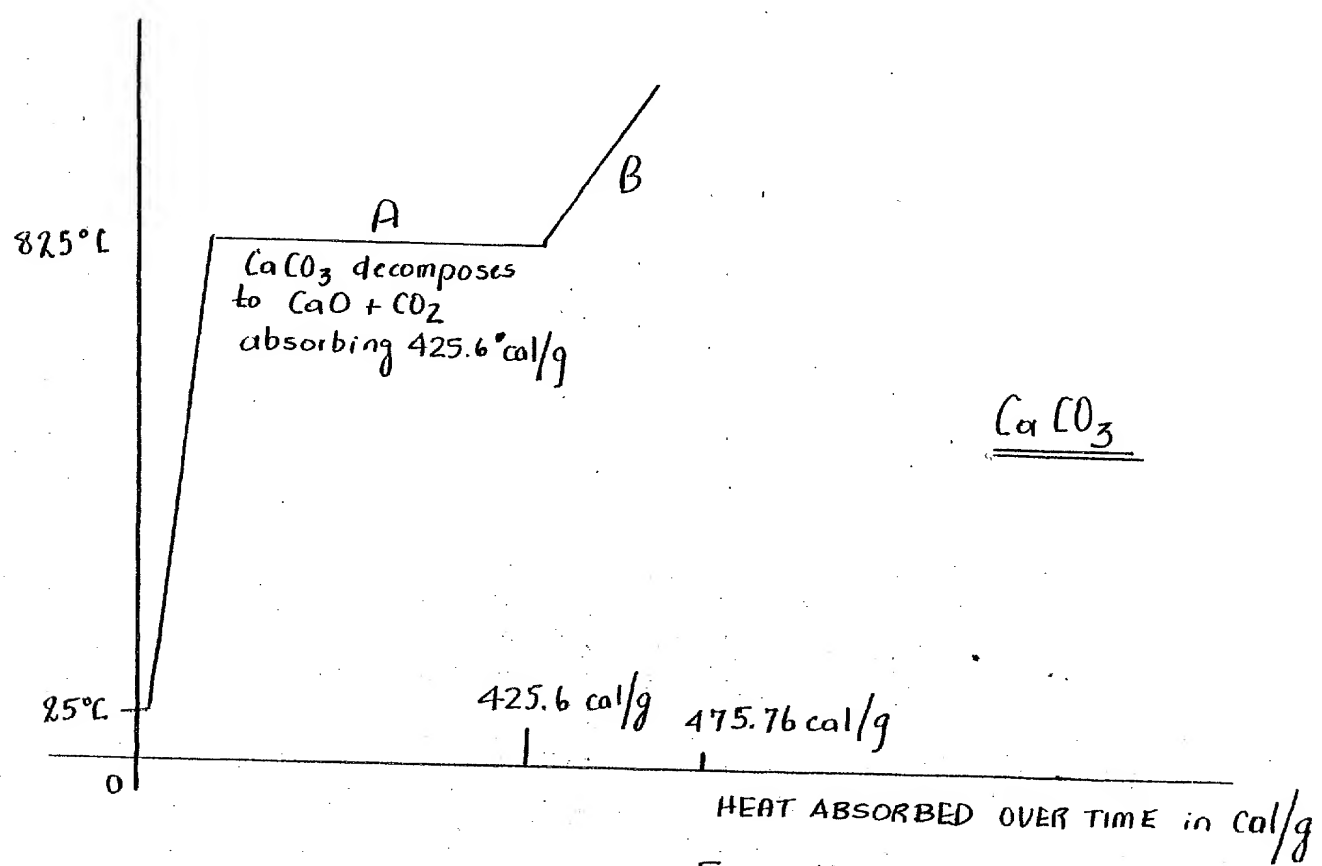 A
B
825°C
CaCO₃ decomposes
to CaO + CO₂
absorbing 425.6 cal/g
CaCO₃
25°C
425.6 cal/g
475.76 cal/g
0
HEAT ABSORBED OVER TIME in Cal/g